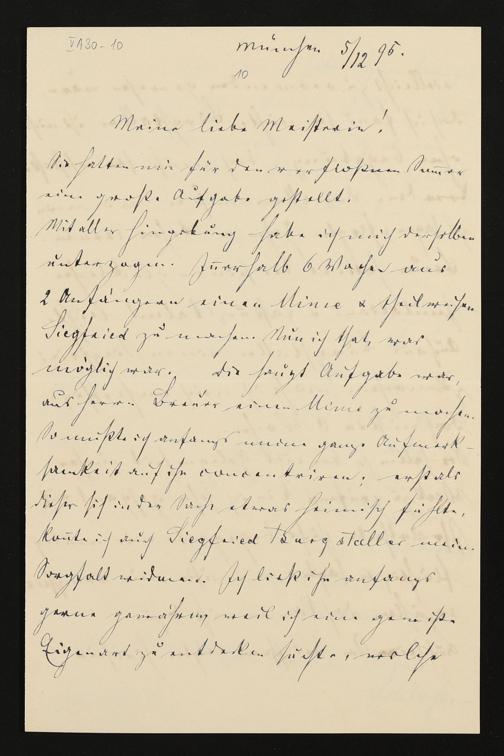 VA30-10
München 5/12 95.
10
Meine liebe Meisterin!
Sie hatten mir für den verfloßnen Sommer
eine große Aufgabe gestellt.
Mit aller Hingebung habe ich mich derselben
unterzogen. Innerhalb 6 Wochen aus
2 Anfängern einen Mime & theilweisen
Siegfried zu machen. Nun ich that, was
möglich war. Die Haupt Aufgabe war,
aus Herrn Breuer einen Mime zu machen.
So mußte ich anfangs meine ganze Aufmerk-
samkeit auf ihn concentriren; erst als
dieser sich in der Sache etwas heimisch fühlte,
konnte ich auch Siegfried Burgstaller meine
Sorgfalt widmen. Ich ließ ihn anfangs
gerne gewähren weil ich eine gewisse
Eigenart zu entdecken suchte, welche